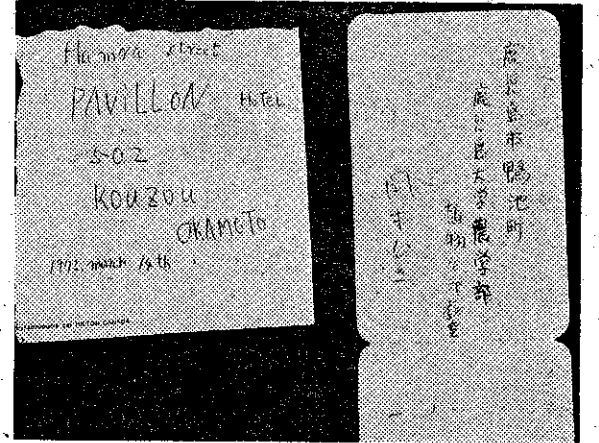 Hamra street
PAVILLON HOTEL
502
KOUZOU
OKAMOTO
1972. march 14th
鹿児島市鴨池町
鹿児島大学農学部
植物 教室
岡本公三